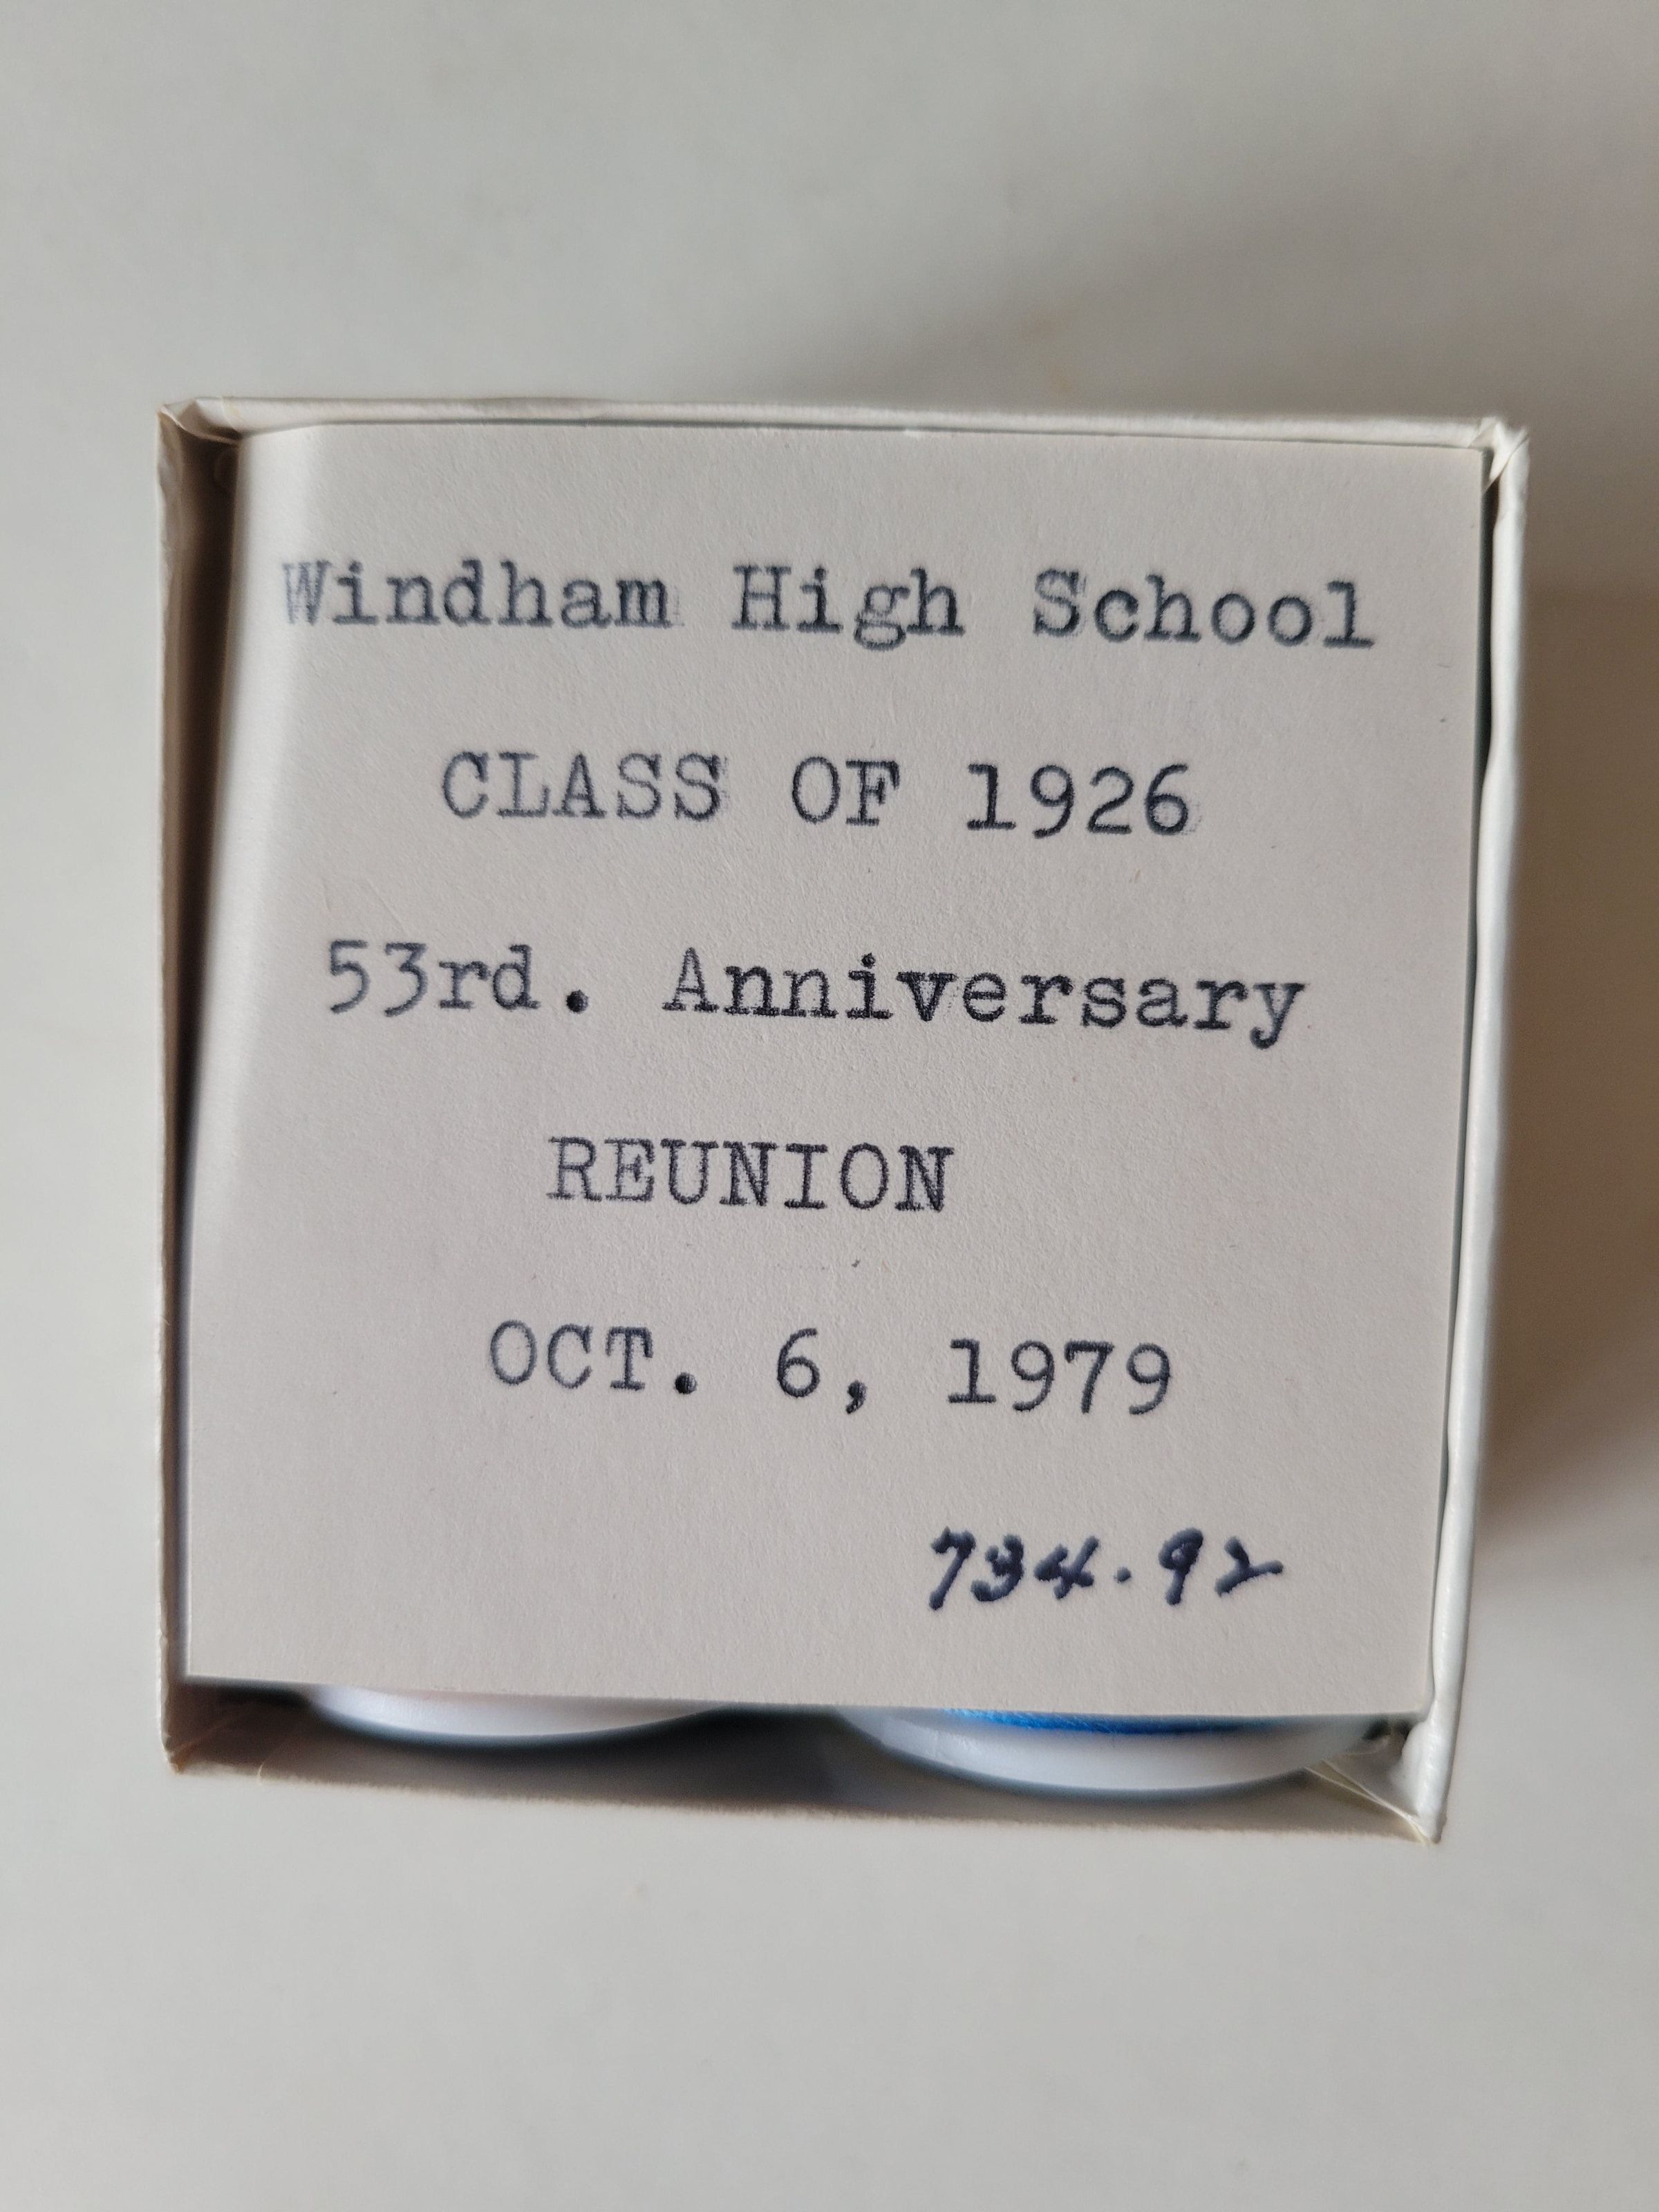 Windham High School
CLASS OF 1926
53rd. Anniversary
REUNION
OCT. 6, 1979
734.92